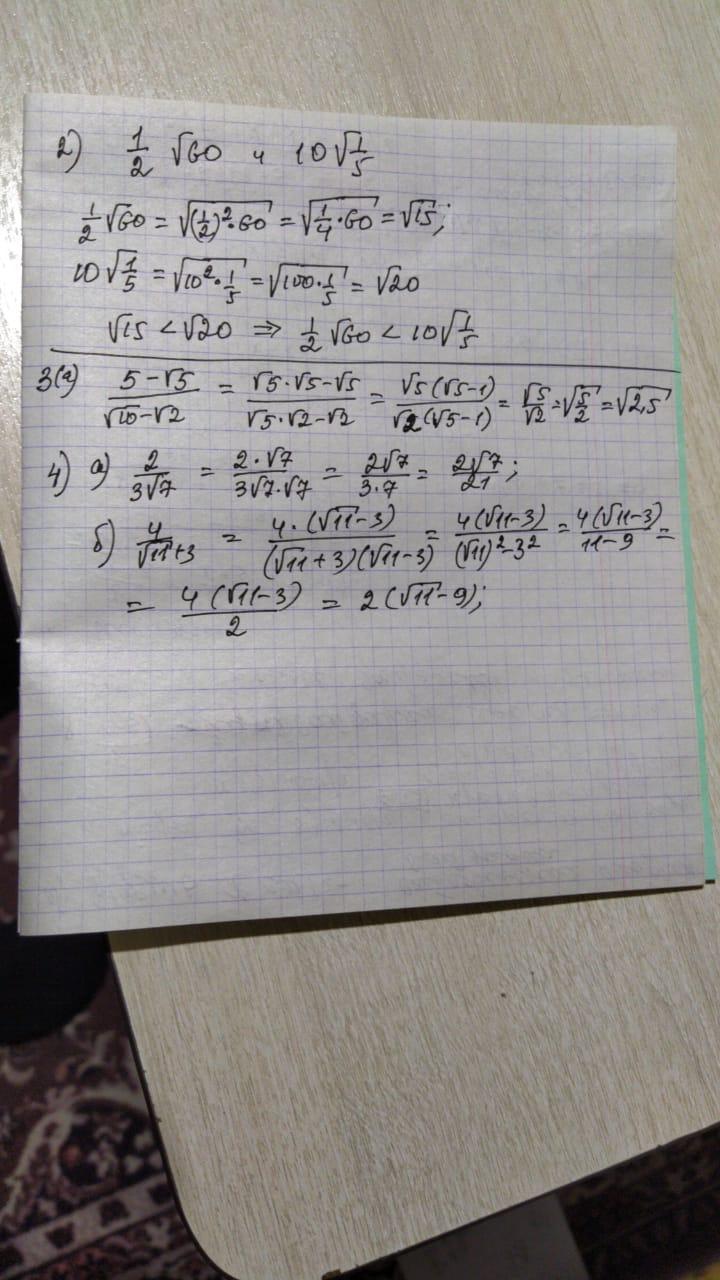 2) 1/2 √60 и 10√1/5
1/2 √60 = √(1/2)²·60 = √1/4·60 = √15;
10√1/5 = √10²·1/5 = √100·1/5 = √20
√15 < √20 ⇒ 1/2 √60 < 10√1/5
3(а) 5-√5/√10-√2 = √5·√5-√5/√5·√2-√2 = √5(√5-1)/√2(√5-1) = √5/√2 = √5/2 = √2,5
4) а) 2/3√7 = 2·√7/3√7·√7 = 2√7/3·7 = 2√7/21;
б) 4/√11+3 = 4·(√11-3)/(√11+3)(√11-3) = 4(√11-3)/(√11)²-3² = 4(√11-3)/11-9 =
= 4(√11-3)/2 = 2(√11-9);